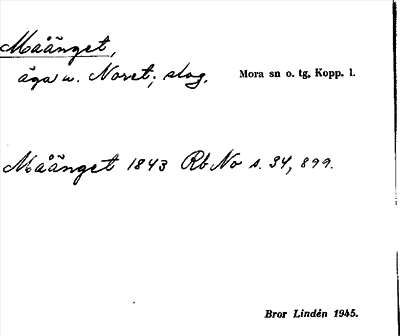 Måänget,
äga u. Noret; slog. Mora sn o. tg, Kopp. l.
Måänget 1843 Rb No s. 34, 899.
Bror Lindén 1945.